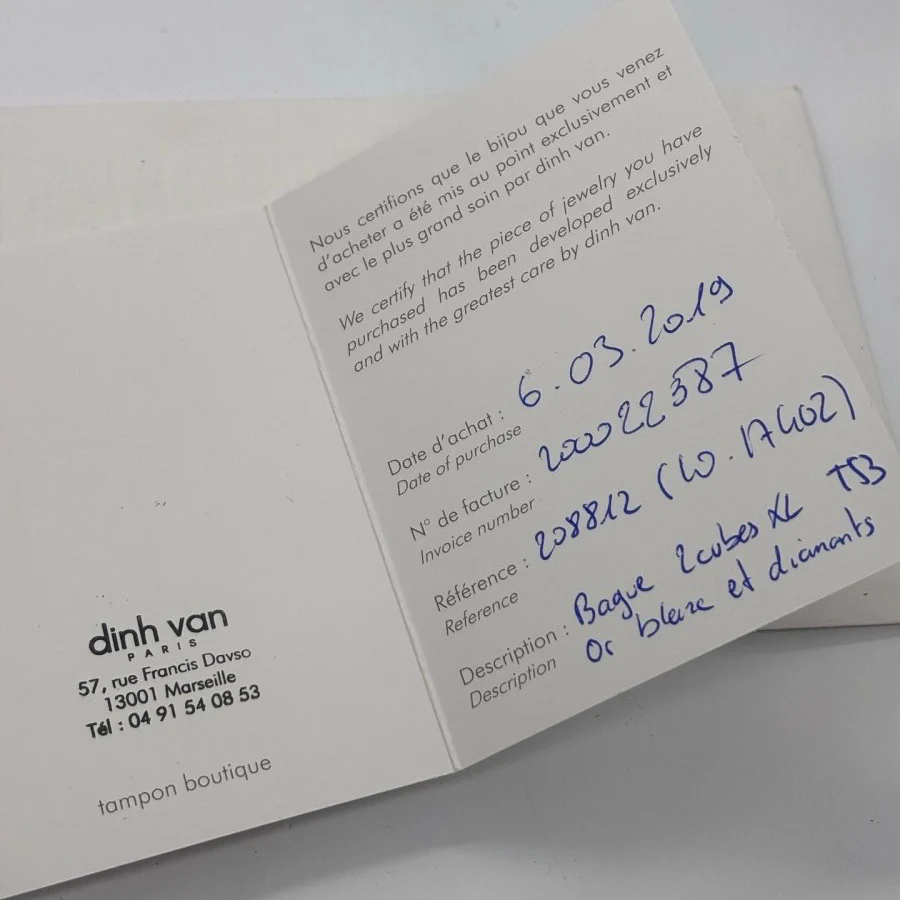 dinh van
PARIS
57, rue Francis Davso
13001 Marseille
Tél : 04 91 54 08 53
tampon boutique
Nous certifions que le bijou que vous venez
d'acheter a été mis au point exclusivement et
avec le plus grand soin par dinh van.
We certify that the piece of jewelry you have
purchased has been developed exclusively
and with the greatest care by dinh van.
Date d'achat : 6.03.2019
Date of purchase
N° de facture : 200022387
Invoice number
Référence : 208812 (LO.17402)
Reference
Description : Bague 2 cubes XL T53
Description Or blanc et diamants